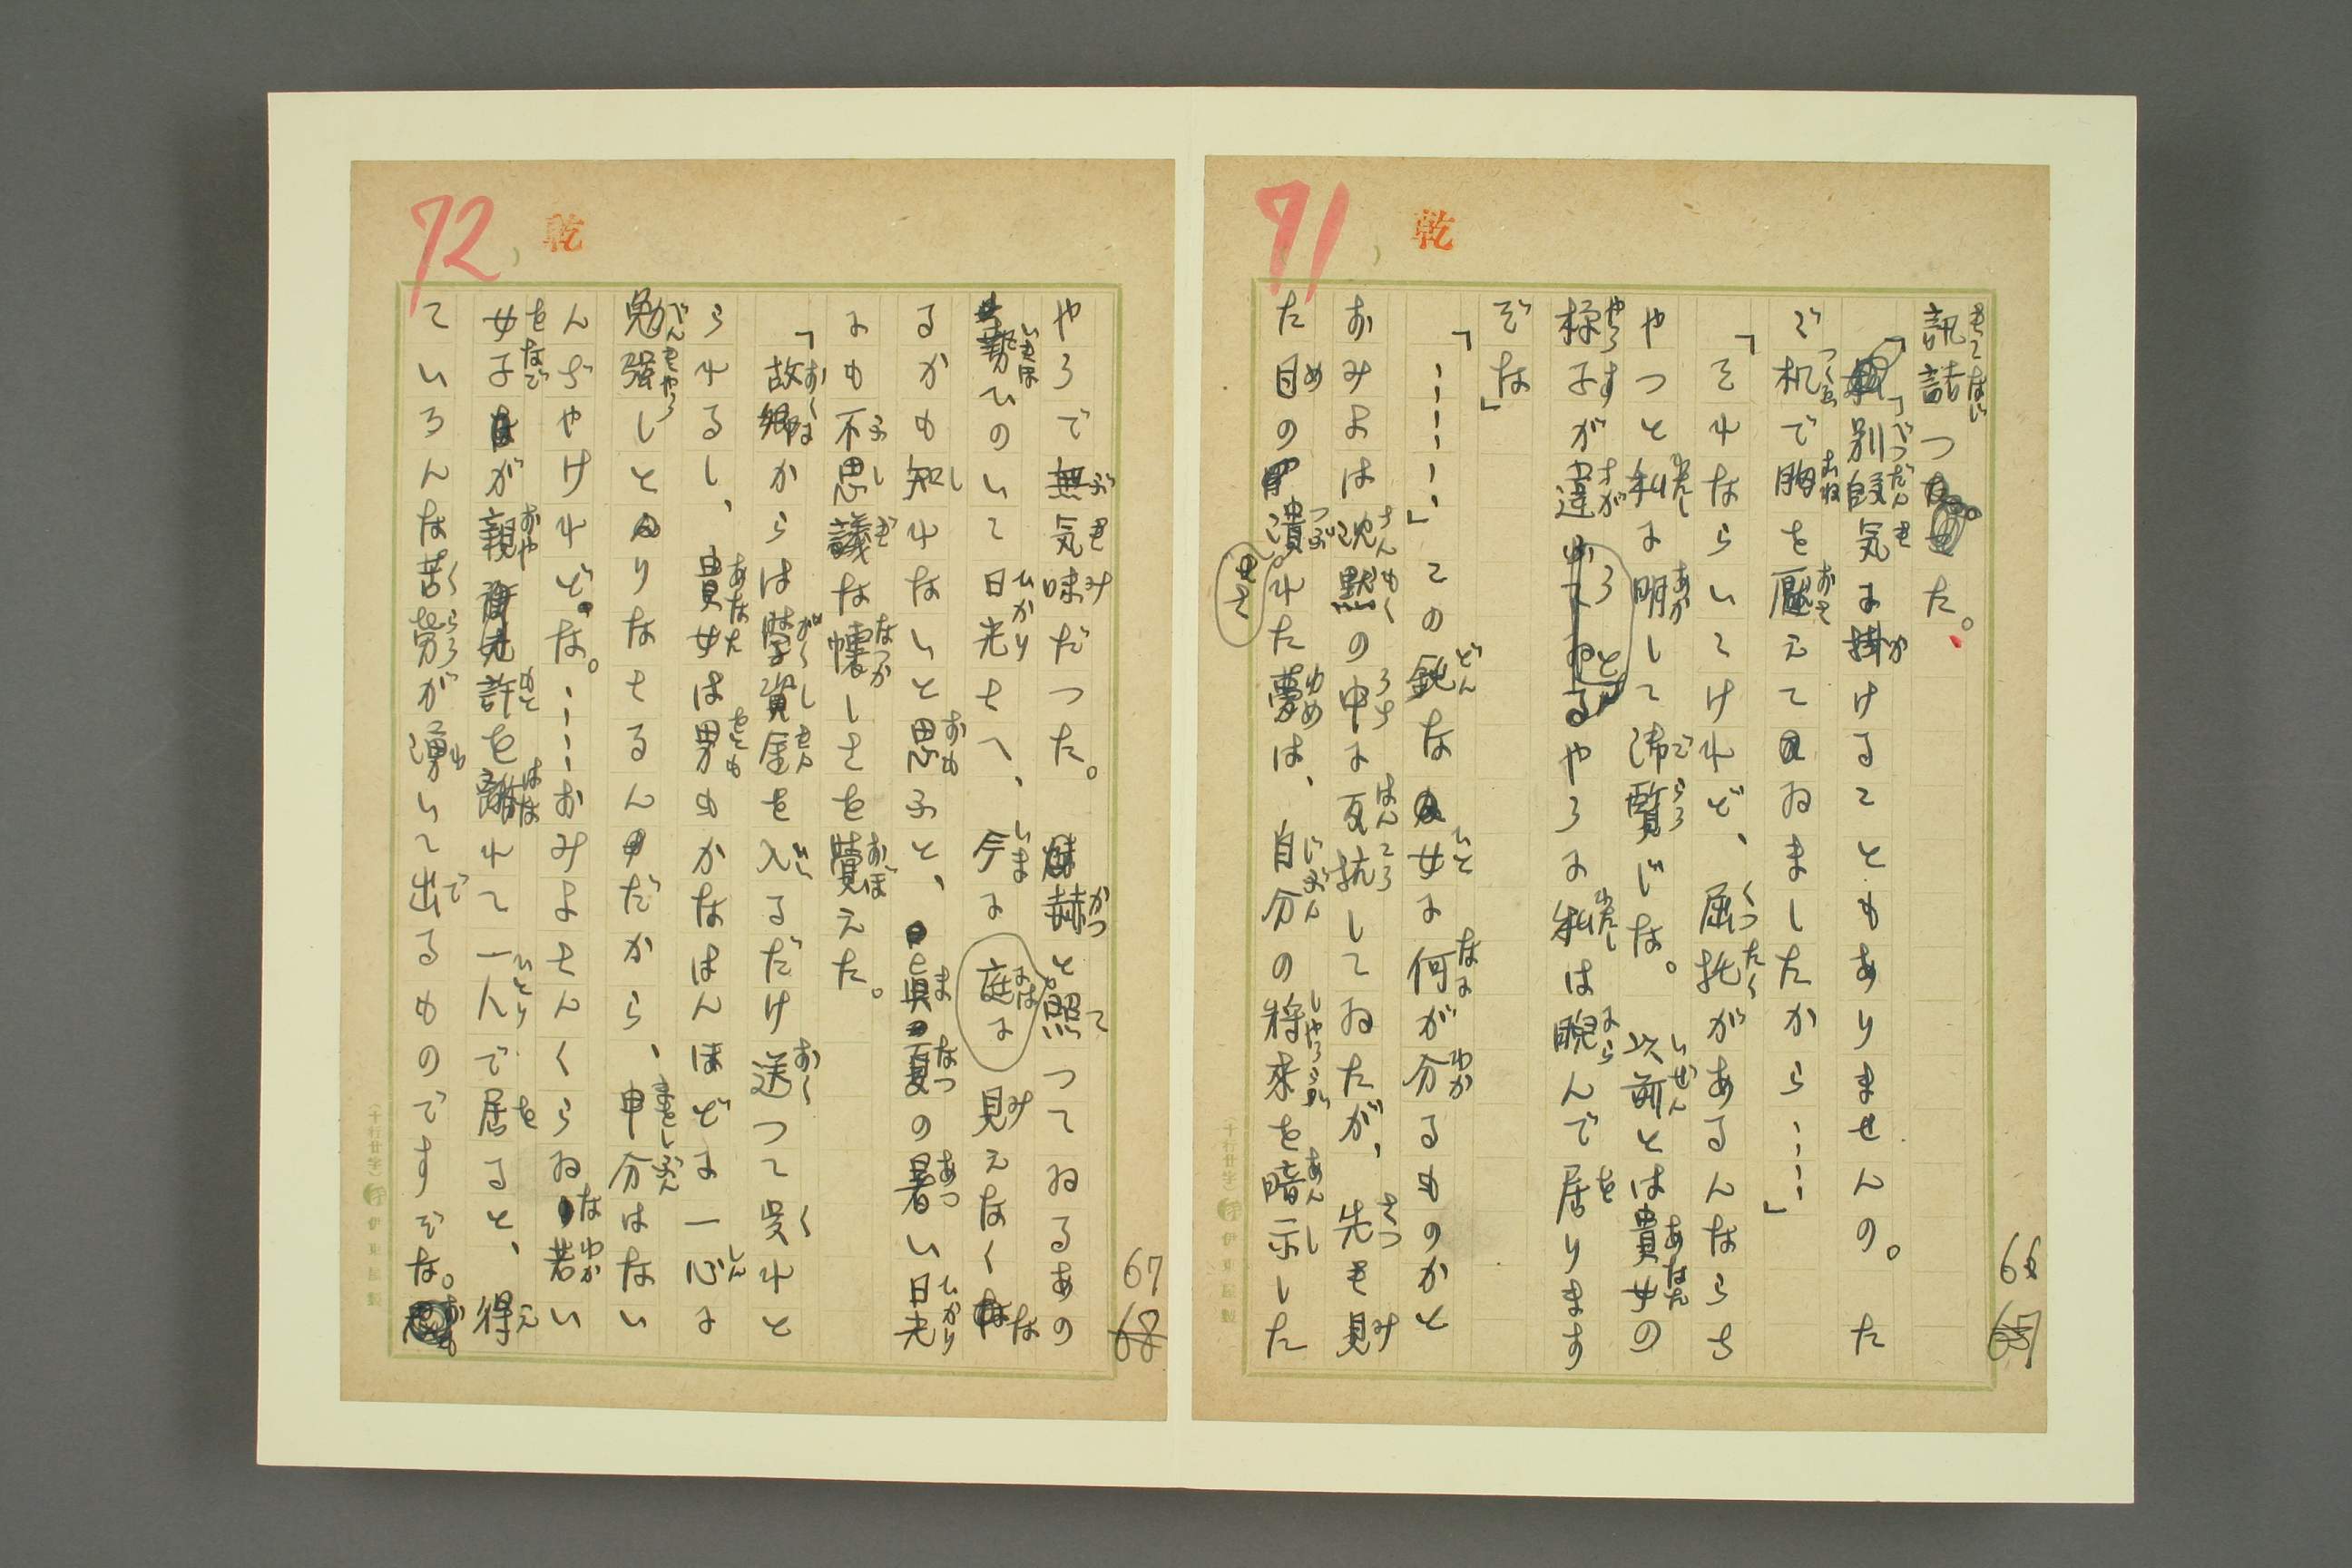 71
乾
66
訊詰つた。
「別段気に掛けることもありませんの。た
ゞ机で胸を壓えてゐましたから……」
「それならいゝけれど、屈托があるんならち
やつと私に明して沸覧じな。以前とは貴女の
様子が違うとるやろに私は睨んで居ります
ぞな」
「……」この鈍な女に何が分るものかと
おみよは沈黙の中に反抗してゐたが、先き見
た目の潰れた夢は、自分の将来を暗示した
72
乾
67
やうで無気味だつた。赫と照つてゐるあの
勢ひのいゝ日光さへ、今に見えなくな
るかも知れないと思ふと、眞夏の暑い日光
にも不思議な懐しさを覺えた。
「故郷からは学資金を入るだけ送つて呉れと
られるし、貴女は男もかなはんほどに一心に
勉強しとりなさるんだから、申分はない
んぢやけれどな。……おみよさんくらゐな若い
女子が親許を離れて一人で居ると、得
ていろんな苦労が湧いて出るものですぞな。